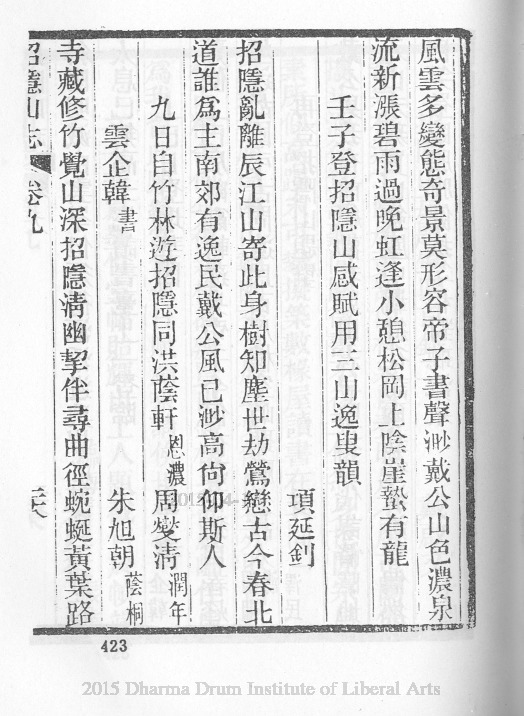 風雲多變態奇景莫形容帝子書聲渺戴公山色濃泉
流新漲碧雨過晚虹逢小憩松岡上陰崖蟄有龍
壬子登招隱山感賦用三山逸叟韻
項延釗
招隱亂離辰江山寄此身樹知塵世劫鶯戀古今春北
道誰為主南郊有逸民戴公風已渺高尙仰斯人
九日自竹林遊招隱同洪蔭軒恩濃周燮淸潤年
雲企韓書 朱旭朝蔭桐
寺藏修竹覺山深招隱淸幽挈伴尋曲徑蜿蜒黃葉路
招隱山志 卷九 三六
423
2015 Dharma Drum Institute of Liberal Arts